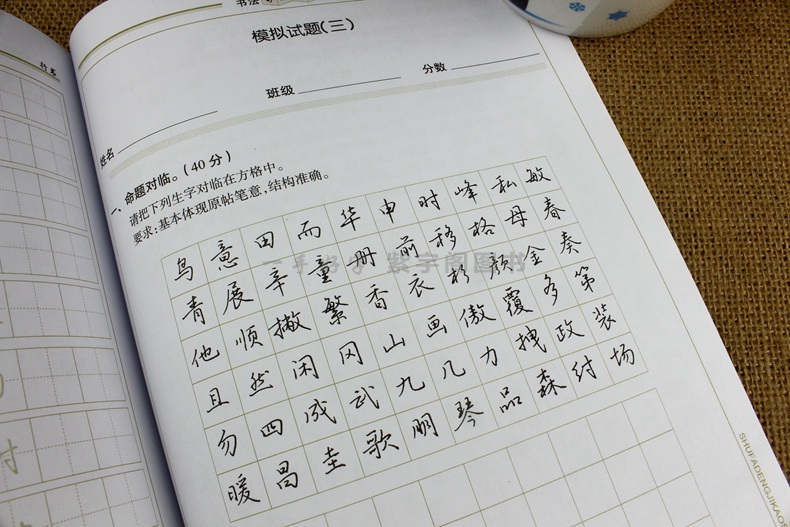 行书
书法
模拟试题(三)
姓名 班级 分数
一、命题对临。(40分)
请把下列生字对临在方格中。
要求:基本体现原帖笔意,结构准确。
鸟意田而华申时峰私敏
青展辛童册前移格母春
他顺撇繁香衣衫颜金奏
且然闲冈山画傲覆多第
勿四成武九几力拽政装
暖昌圭歌朋琴品森纣场
一手好字 紫字阁图书
SHUFADENGJIKAO